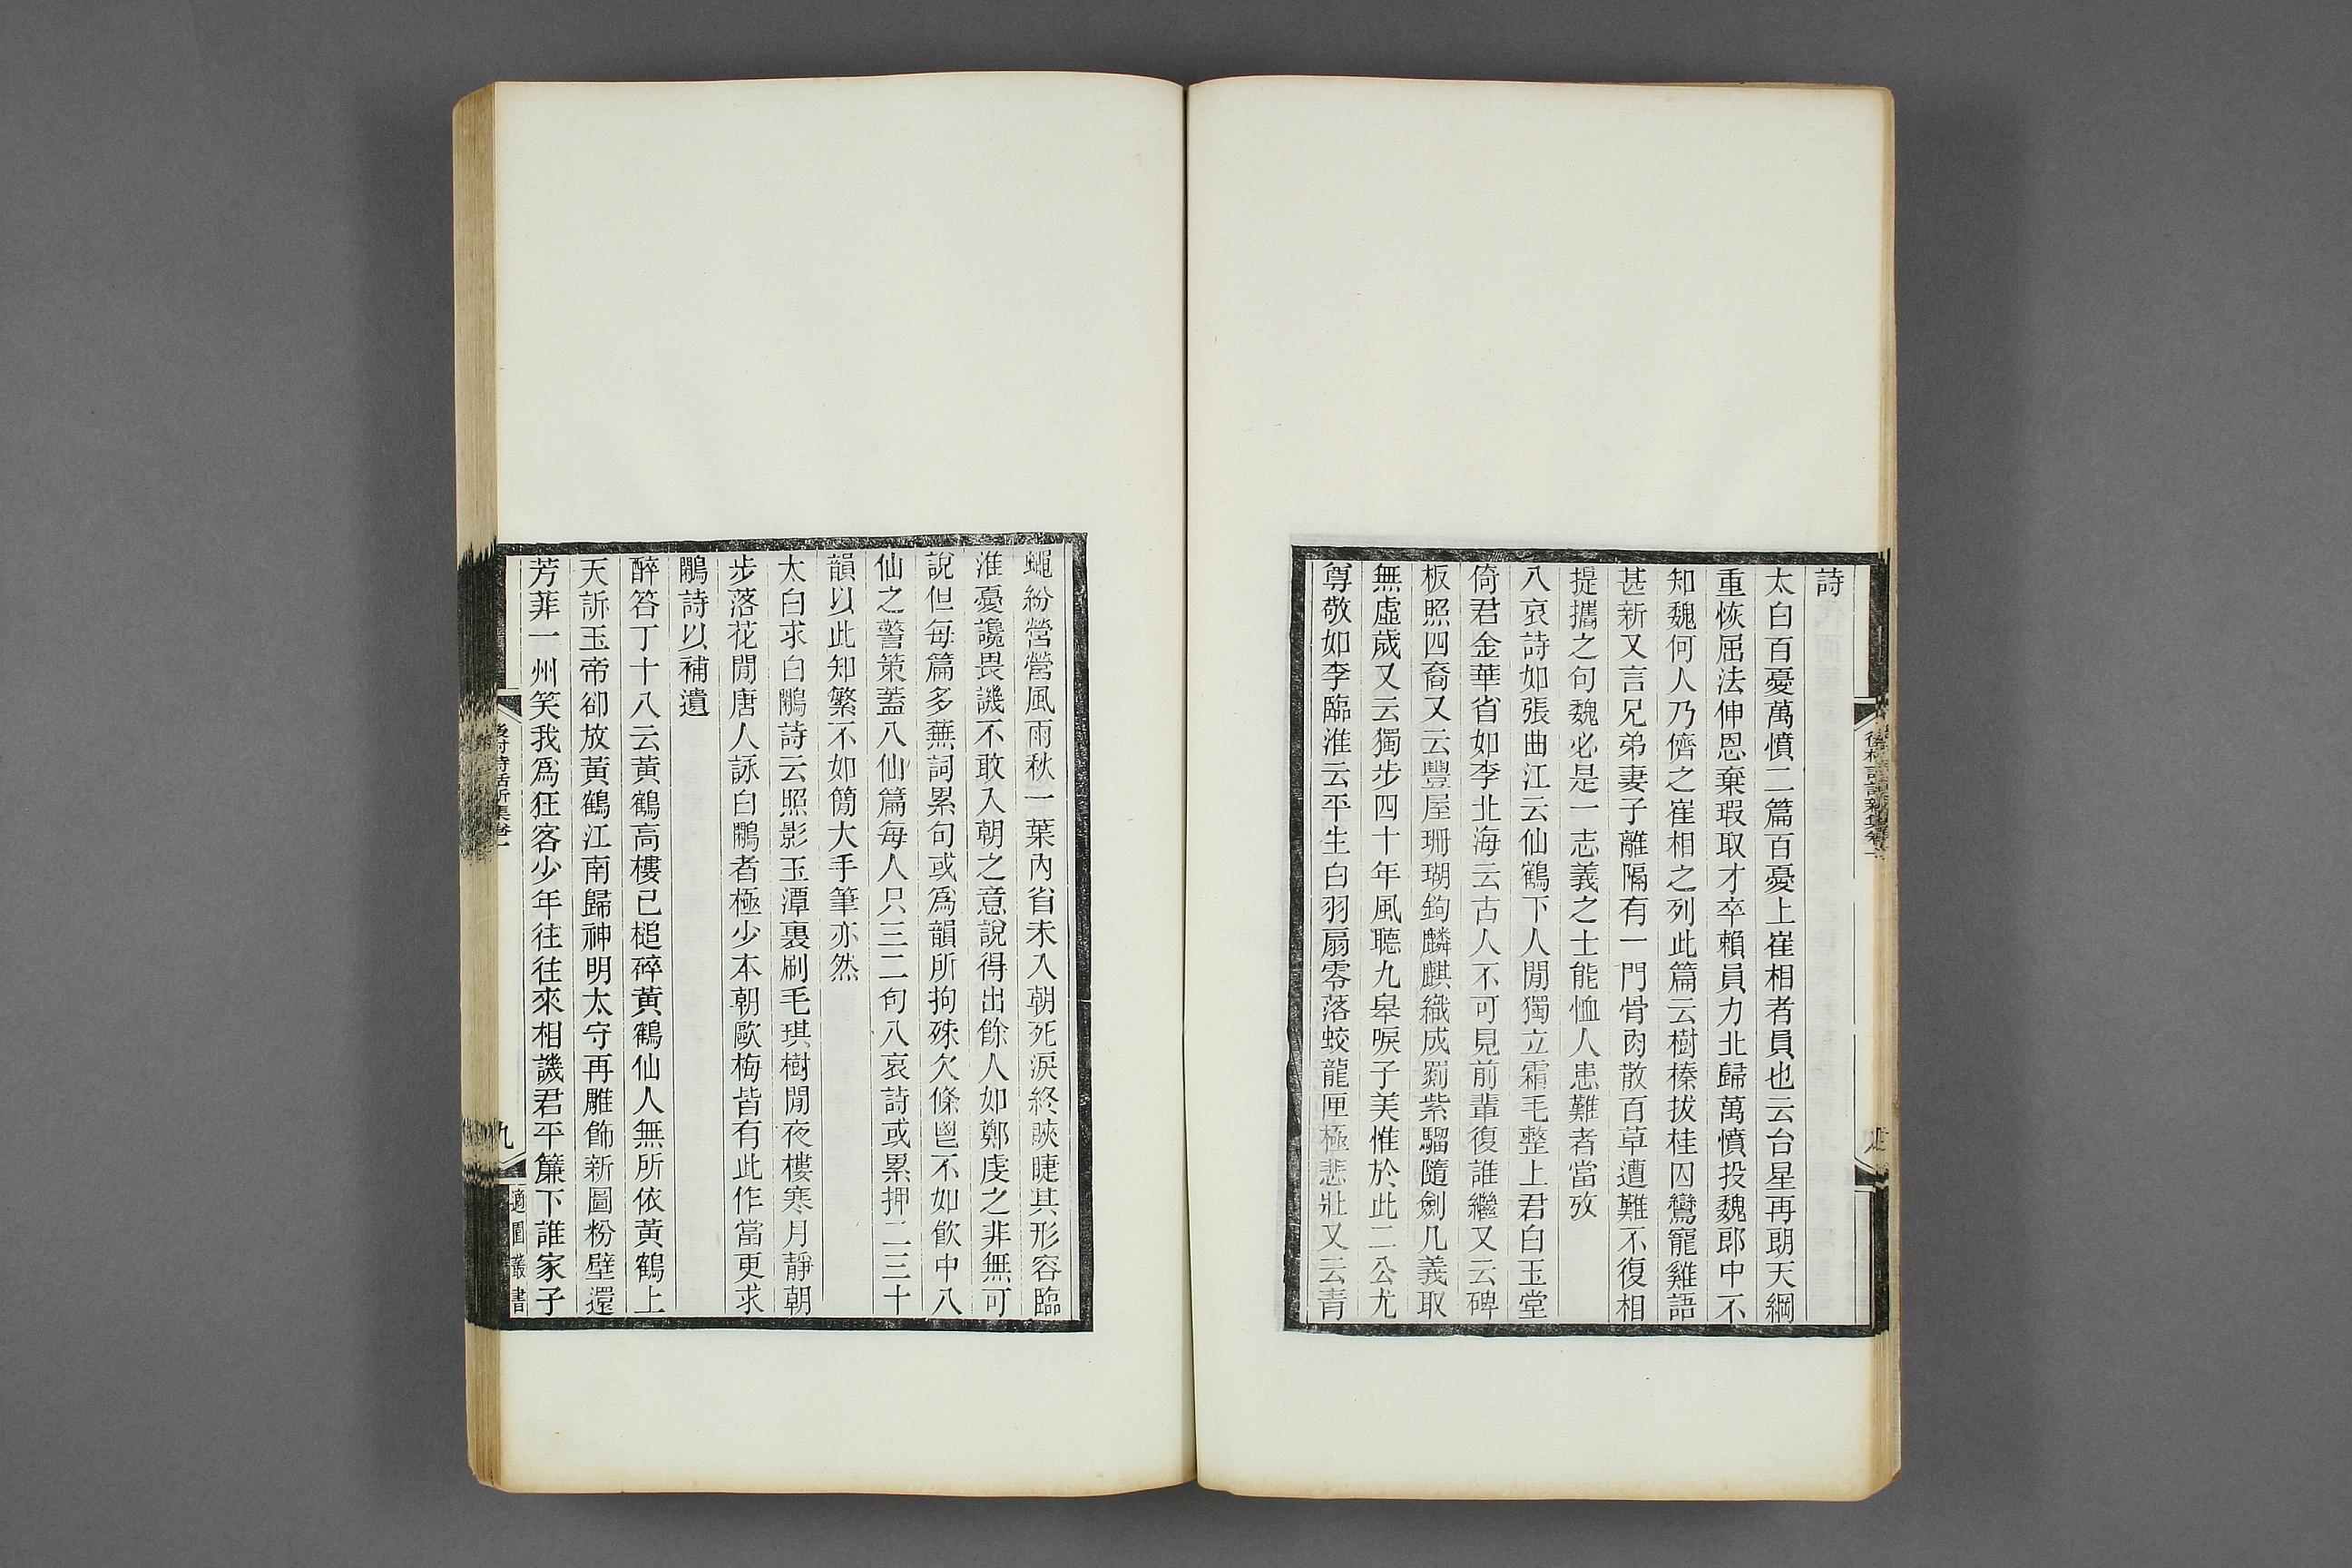 詩
太白百憂萬憤二篇百憂上崔相者員也云台星再朗天綱
重恢屈法伸恩棄瑕取才卒賴員力北歸萬憤投魏郎中不
知魏何人乃儕之崔相之列此篇云樹榛拔桂囚鸞寵雞語
甚新又言兄弟妻子離隔有一門骨肉散百草遭難不復相
提攜之句魏必是一志義之士能恤人患難者當攷
八哀詩如張曲江云仙鶴下人閒獨立霜毛整上君白玉堂
倚君金華省如李北海云古人不可見前輩復誰繼又云碑
板照四裔又云豐屋珊瑚鉤麟麒織成罽紫騮隨劍几義取
無虛歲又云獨步四十年風聽九皋唳子美惟於此二公尤
尊敬如李臨淮云平生白羽扇零落蛟龍匣極悲壯又云青
蠅紛營營風雨秋一葉內省未入朝死淚終睫其形容臨
淮憂讒畏譏不敢入朝之意說得出餘人如鄭虔之非無可
說但每篇多蕪詞累句或爲韻所拘殊欠條鬯不如飲中八
仙之警策蓋八仙篇每人只三二句八哀詩或累押二三十
韻以此知繁不如簡大手筆亦然
太白求白鷴詩云照影玉潭裏刷毛琪樹閒夜樓寒月靜朝
步落花閒唐人詠白鷴者極少本朝歐梅皆有此作當更求
鷴詩以補遺
醉答丁十八云黃鶴高樓已槌碎黃鶴仙人無所依黃鶴上
天訴玉帝卻放黃鶴江南歸神明太守再雕飾新圖粉壁還
芳菲一州笑我爲狂客少年往往來相譏君平簾下誰家子
後村詩話新集卷一
九
適園叢書